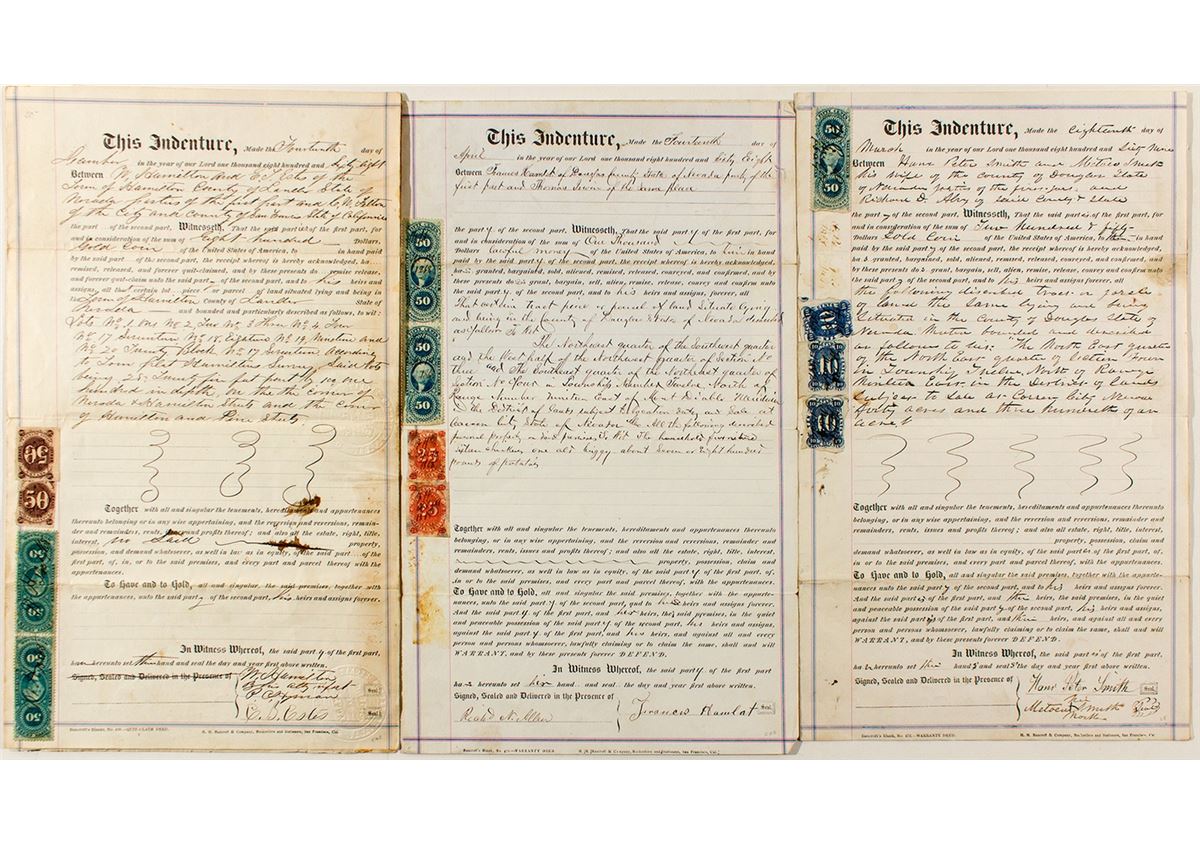 This Indenture, Made the Fourteenth day of
in the year of our Lord one thousand eight hundred and Sixty Eight
Between W. Hamilton and of the
Town of Hamilton County of Lander State of
Nevada parties of the first part and
of the city and county of San State of California
the part of the second part, Witnesseth, That the said parties of the first part, for
and in consideration of the sum of Eight hundred Dollars,
Gold Coin of the United States of America, to in hand paid
by the said part of the second part, the receipt whereof is hereby acknowledged, ha
remised, released, and forever quit-claimed, and by these presents do remise, release,
and forever quit-claim unto the said part of the second part, and to his heirs and
assigns, all that certain lot piece or parcel of land situated lying and being in
Town of Hamilton County of Lander State of
Nevada and bounded and particularly described as follows, to wit:
Lots No 1 One No 2 Two No 3 Three No 4 Four
No 17 Seventeen No 18 Eighteen No 19 Nineteen and
No 20 Twenty Block No 17 Seventeen According
to Town plat Hamiltons Survey Said lots
being 25 Twenty five feet front by 100 one
hundred in depth, in the the corner of
Nevada & Hamilton Streets and the corner
of Hamilton and Pine Streets.
50
50
50
50
50
50
Together with all and singular the tenements, hereditaments and appurtenances
thereunto belonging or in any wise appertaining, and the reversion and reversions, remain-
der and remainders, rents, issues and profits thereof; and also all the estate, right, title,
interest, property,
possession, and demand whatsoever, as well in law as in equity, of the said part of the
first part, of, in, or to the said premises, and every part and parcel thereof with the
appurtenances.
To Have and to Hold, all and singular, the said premises, together with
the appurtenances, unto the said party of the second part, his heirs and assigns forever.
In Witness Whereof, the said party of the first part,
have hereunto set their hand and seal the day and year first above written.
Signed, Sealed and Delivered in the Presence of
W. Hamilton
Seal.
Seal.
Bancroft's Blank, No. QUIT-CLAIM DEED.
H. H. Bancroft & Company, Booksellers and Stationers, San Francisco, Cal.
This Indenture, Made the Fourteenth day of
April in the year of our Lord one thousand eight hundred and Sixty Eight
Between Frances Hamlot of Douglas County State of Nevada party of the
first part and Thomas of the same place
the party of the second part, Witnesseth, That the said party of the first part, for
and in consideration of the sum of One Thousand
Dollars lawful money of the United States of America, to him in hand
paid by the said party of the second part, the receipt whereof is hereby acknowledged,
ha s granted, bargained, sold, aliened, remised, released, conveyed, and confirmed, and by
these presents do es grant, bargain, sell, alien, remise, release, convey and confirm unto
the said party of the second part, and to his heirs and assigns forever, all
That certain tract piece or parcel of land Situate lying
and being in the County of Douglas State of Nevada described
as follows To Wit
The Northwest quarter of the Southwest quarter
and the West half of the Northwest quarter of Section No
three and the Southeast quarter of the Northeast quarter of
Section No four in Township Number Twelve North of
Range Number nineteen East of Mount Diablo Meridian
in the District of lands subject to sale at
Carson City State of Nevada Also All the following described
personal property on said premises To Wit The household furniture
chickens one old buggy about Seven or Eight hundred
pounds of potatoes
50
50
50
50
25
25
Together with all and singular the tenements, hereditaments and appurtenances thereunto
belonging, or in any wise appertaining, and the reversion and reversions, remainder and
remainders, rents, issues and profits thereof; and also all the estate, right, title, interest,
property, possession, claim and
demand whatsoever, as well in law as in equity, of the said party of the first part, of,
in or to the said premises, and every part and parcel thereof, with the appurtenances.
To Have and to Hold, all and singular the said premises, together with the appurte-
nances, unto the said party of the second part, and to his heirs and assigns forever.
And the said party of the first part, and her heirs, the said premises, in the quiet
and peaceable possession of the said party of the second part, his heirs and assigns,
against the said party of the first part, and his heirs, and against all and every
person and persons whomsoever, lawfully claiming or to claim the same, shall and will
WARRANT, and by these presents forever DEFEND.
In Witness Whereof, the said party of the first part
ha s hereunto set her hand and seal the day and year first above written.
Signed, Sealed and Delivered in the Presence of
Francis Hamlot
Seal.
Bancroft's Blank, No. WARRANTY DEED.
H. H. Bancroft & Company, Booksellers and Stationers, San Francisco, Cal.
This Indenture, Made the Eighteenth day of
March in the year of our Lord one thousand eight hundred and Sixty Nine
Between Hans Peter Smith and Smith
his wife of the county of Douglas State
of Nevada parties of the first part and
Richard D. of said County & State
the party of the second part, Witnesseth, That the said parties of the first part, for
and in consideration of the sum of Two Hundred & fifty
Dollars Gold Coin of the United States of America, to them in hand
paid by the said party of the second part, the receipt whereof is hereby acknowledged,
ha granted, bargained, sold, aliened, remised, released, conveyed and confirmed, and
by these presents do grant, bargain, sell, alien, remise, release, convey and confirm unto
the said party of the second part, and to his heirs and assigns forever, all
the following described tract or parcel
of land the Same lying and being
Situated in the County of Douglas State of
Nevada bounded and described
as follows to wit: The North East quarter
of the North East quarter of Section Four
in Township Twelve North of Range
Nineteen East in the District of Lands
Subject to Sale at Carson City Nevada
forty acres and three hundreths of an
acre
50
50
10
10
Together with all and singular the tenements, hereditaments and appurtenances thereunto
belonging, or in any wise appertaining, and the reversion and reversions, remainder and
remainders, rents, issues and profits thereof; and also all estate, right, title, interest,
property, possession, claim and
demand whatsoever, as well in law as in equity, of the said parties of the first part, of,
in or to the said premises, and every part and parcel thereof, with the appurtenances.
To Have and to Hold, all and singular the said premises, together with the appurte-
nances, unto the said party of the second part, and to his heirs and assigns forever.
And the said parties of the first part, and their heirs, the said premises, in the quiet
and peaceable possession of the said party of the second part, his heirs and assigns,
against the said parties of the first part, and their heirs, and against all and every
person and persons whomsoever, lawfully claiming or to claim the same, shall and will
WARRANT, and by these presents forever DEFEND.
In Witness Whereof, the said parties of the first part,
ha hereunto set their hand s and seal s the day and year first above written.
Signed, Sealed and Delivered in the Presence of
Hans Peter Smith
Seal.
Smith
mark
Bancroft's Blank, No. WARRANTY DEED.
H. H. Bancroft & Company, Booksellers and Stationers, San Francisco, Cal.